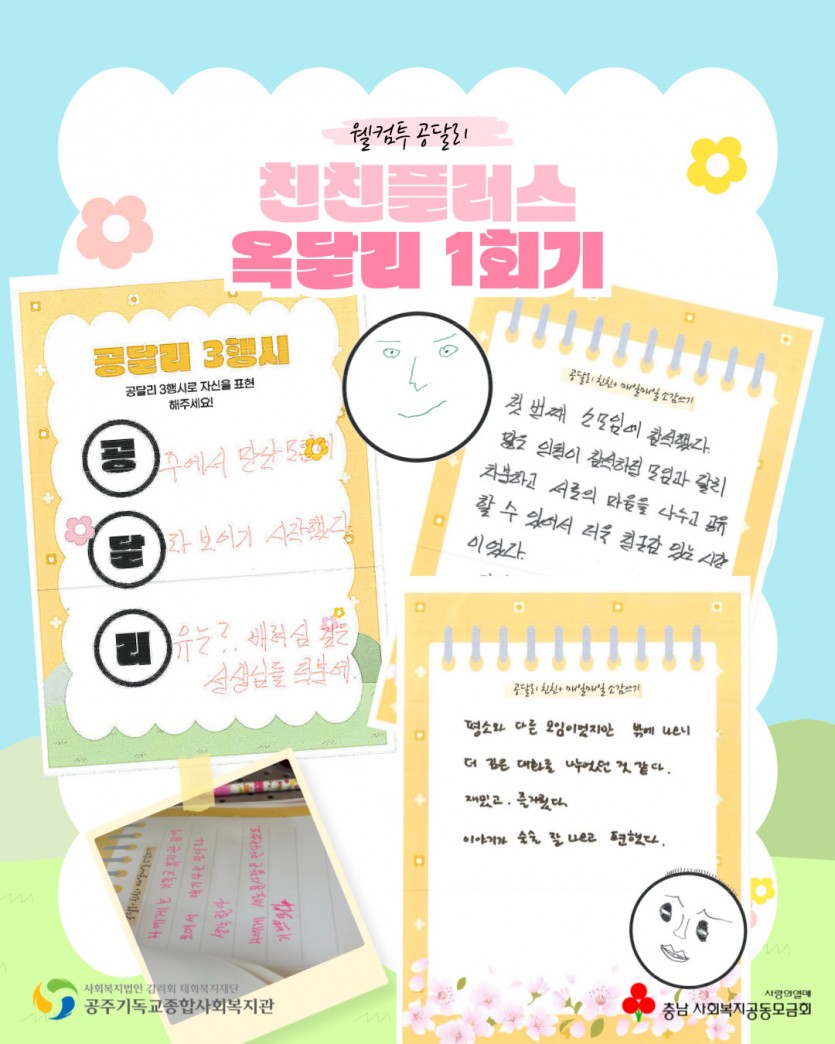 웰컴투 공달리
친친플러스
옥달리 1회기
공달리 3행시
공달리 3행시로 자신을 표현
해주세요!
공 주에서 만난 모임이
달 라 보이기 시작했다
리 유는?.. 배려심 깊은
선생님들 덕분에.
공달리 친친+ 매일매일 소감쓰기
첫 번째 소모임에 참석했다.
많은 인원이 참석하던 모임과 달리
차분하고 서로의 마음을 나누고 공유
할 수 있어서 더욱 친근감 있는 시간
이었다.
공달리 친친+ 매일매일 소감쓰기
평소와 다른 모임이었지만 밖에 나오니
더 깊은 대화를 나누었던 것 같다.
재밌고. 즐거웠다.
이야기가 술술 잘 나오고 편했다.
사회복지법인 감리회 태화복지재단
공주기독교종합사회복지관
사랑의열매
충남 사회복지공동모금회